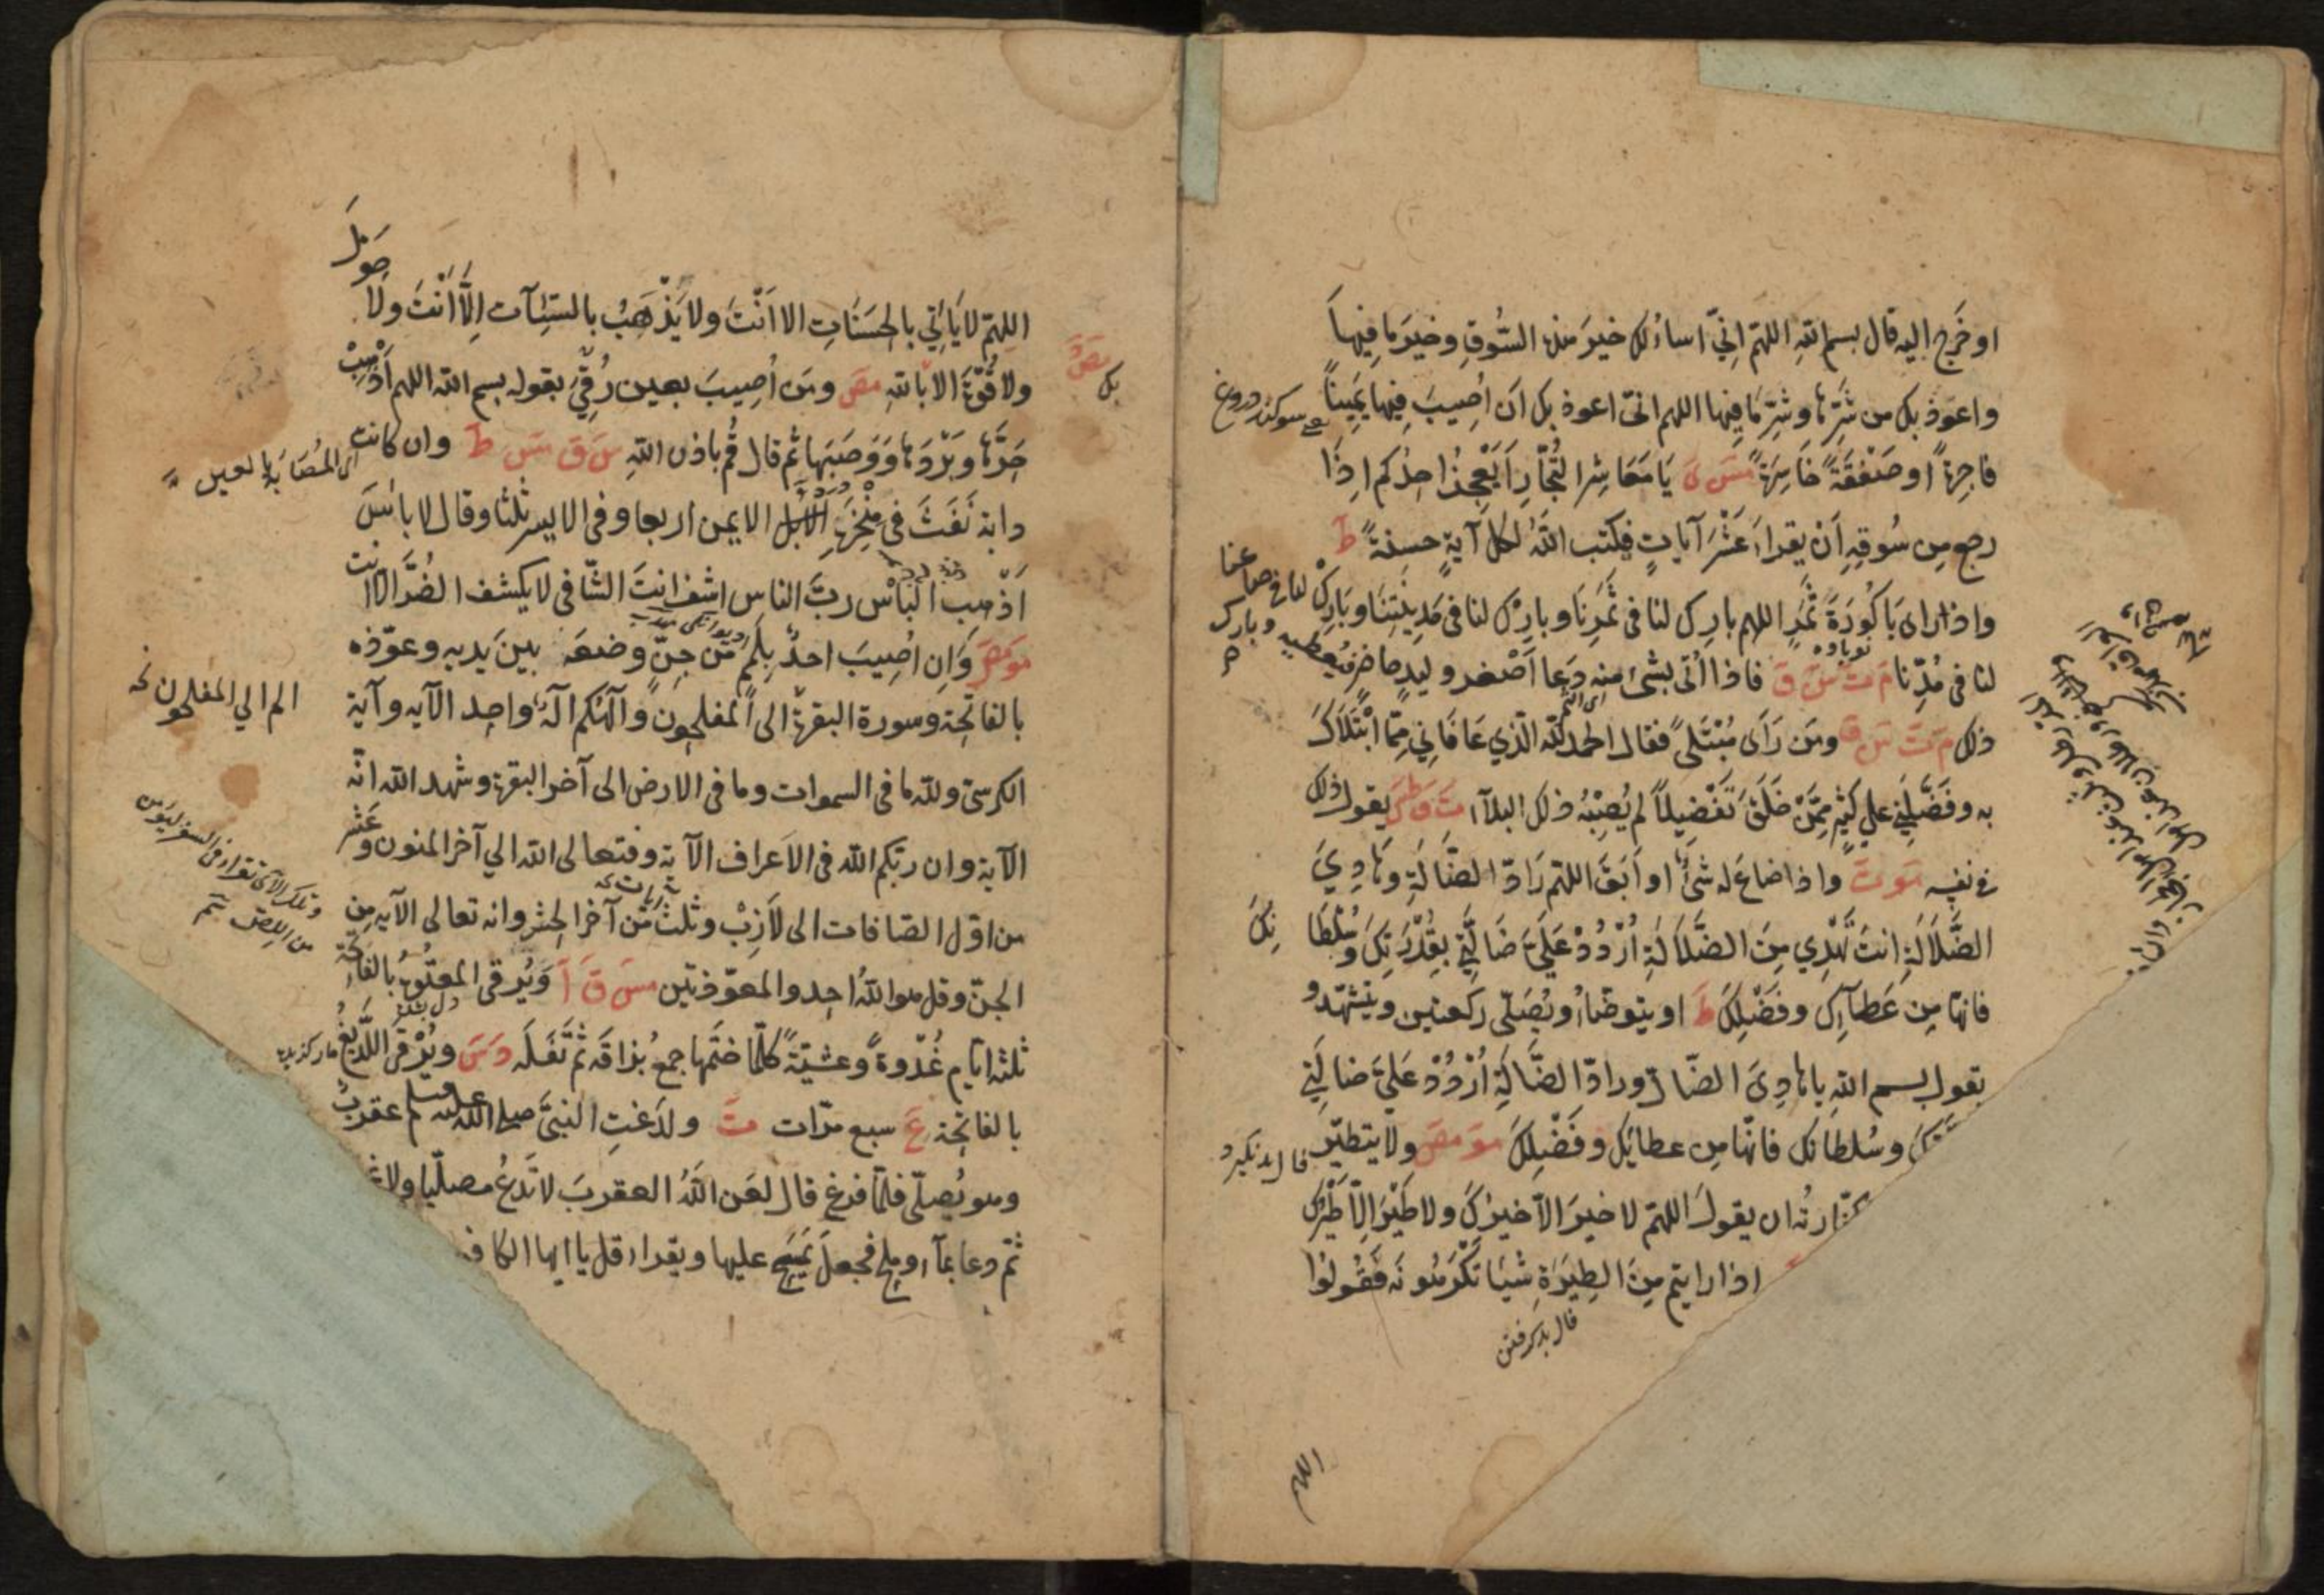 او خَرَج اليه قال بسم اللهِ اللهمّ اِنّي اساءلك خيرَ هذه السُّوقِ وخيرَ ما فِيها
واعوذ بك من شَرِّها وشرِّ مَا فِيها اللهم انى اعوذ بك اَن اُصِيبَ فِيها يَمِيناً
سوكند دروغ
فاجِرَةً او صَفْقَةً خَاسِرَةً مسَ ىَ يَا مَعَاشِرَ التُّجّارِ اَيَعْجِزُ احدُكم اِذَا
رجع مِن سُوقِهِ اَنْ يقراَء عَشْرَ آياتٍ فيكتب اللهُ لكل آيةٍ حسنةً ط
واذا راى بَاكُورَةَ ثَمَرٍ اللهم بارِك لنا فى ثَمَرِنَا وبارِكْ لنا فى مَدِينَتِنَا وبَارِكْ لنا فى صاعنا
وبارك
نوباوه
لنا فى مُدِّنا مَ تَ سَ قَ فاذا اُتى بشئ منه دَعا اَصْغر وليدٍ حاضرٍ فيُعطيه
ذلك مَ تَ سَ ق ومَن رَأى مُبْتَلىً فقال الحمد لله الّذي عَافَانِي مِمّا ابْتَلاَكَ
به وفَضَّلَنِي علي كثيرٍ مِمَّنْ خَلَقَ تَفْضِيلاً لم يُصِبْهُ ذلك البلآء تَ قَ طَسَ يقول ذلك
فى نفسِه مَوتَ واذا ضاعَ له شئٌ او اَبَقَ اللهمّ رَادّ الضّالّةِ وهَادِيَ
الضّلاَلَةِ انتَ تَهْدِي مِنَ الضَّلاَلَةِ اُرْدُدْ عَلَيَّ ضَالَّتِي بِقُدْرَتِكَ وسُلْطَا
نِكَ
فانّها مِن عَطآئِك وفَضْلِكَ طَ او يتوضّاُ ويُصَلّى ركعتين ويتشهّد و
يقول بسم اللهِ ياهادِىَ الضّال ورادّ الضّالَّةِ اُرْدُدْ عَلَيّ ضالّتِي
وسُلطانك فانّها مِن عطائِك وفَضْلِكَ مَو مصَ ولا يتطيّر
فال بد نكيرد
كفّارتُه ان يقولَ اللهمّ لا خيرَ الاّ خيرُكَ ولا طَيْرَ اِلاّ طَيْرُك
اذا رايتم مِنَ الطِيَرَةِ شيئا تَكْرَهُونَه فَقُولوُا
فال بد كرفتن
اللهم
اللهمّ لا يَأتِي بالحَسَنَاتِ الا اَنْتَ ولا يَذْهَبُ بالسَّيِئآت اِلاَّ اَنْتَ ولا
حَولَ
ولا قُوّةَ الاّ باللهِ مصَ ومَن اُصِيبَ بعين رُقِيَ بقوله بسم الله اللهم اَذْهِبْ
بك
حَرَّها وبَرْدَها ووَصَبَها ثم قال قُم باذن اللهِ سَ قَ مسَ طَ وان كانت
اى المُصابة بالعين
دابة نَفَثَ فى مِنْخَرِهِ الايمن اربعا وفى الايسر ثلثا وقال لا باْسَ
اَذْهِب البَاْس ربَّ الناس اشفِ انتَ الشّافى لا يكشف الضُّرَّ الاّ انت
مَو مصَ وَاِن اُصِيبَ احدٌ بِلَمَمٍ مّن جِنٍّ وضعَه بينَ يديه وعوّذه
بالفاتحة وسورة البقرة الى المفلحون وآلهُكم اِلهٌ واحِد الآيه وآية
الم الي المفلحون
الكرسيّ ولله ما فى السموات وما فى الارض الى آخر البقرة وشهد الله انّه
الآية وان ربّكم الله فى الاَعراف الآية وفتعالى الله الي آخر المنون وعَشْر
من اوّل الصّافات الى لاَزِبْ وثلث مّن آخر الحشر وانه تعالى الآيه مِن
الجنّ وقل هو اللهُ احد والمعوّذتين مسَ قَ اَ وَيُرقى المعتُوهُ بالفاتحة
ثلثة ايّام غُدْوةً وعشيّةً كلّما ختَمها جمعُ بُزاقَه ثم تَفَلَه دَ سَ ويُرْقى اللَّدِيغُ
مار كزيده
بالفاتحة عَ سبع مرّات تَ ولدَغتِ النبيَّ صلى الله عليه وسلم عقربٌ
وهو يُصلّى فلمّا فرغ قال لعَن اللهُ العقربَ لا تَدَعُ مصلّيا ولا غ
ثمّ دعا بمآء وملح فجعلَ يَمسَحُ عليها ويقراء قل يا ايها الكاف